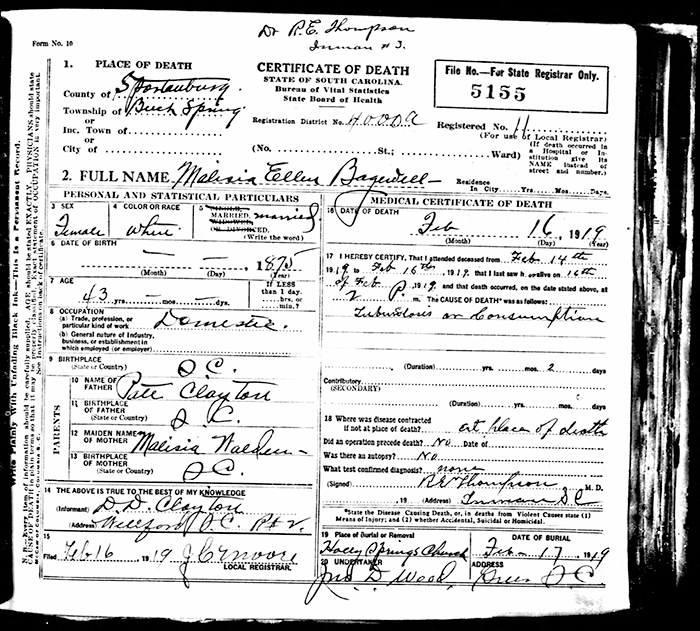 Dr P.E. Thompson
Inman # 3.
Form No. 10
1. PLACE OF DEATH
County of Spartanburg
Township of Buck Spring
or
Inc. Town of
or
City of
CERTIFICATE OF DEATH
STATE OF SOUTH CAROLINA.
Bureau of Vital Statistics
State Board of Health
Registration District No. 4000a
(No. St.; Ward)
File No.—For State Registrar Only.
5155
Registered No. 11
(For use of Local Registrar)
(If death occurred in a Hospital or Institution give its NAME instead of street and number.)
2. FULL NAME Malisia Ellen Bagwell
Residence
In City Yrs. Mos. Days.
PERSONAL AND STATISTICAL PARTICULARS
3 SEX
Female
4 COLOR OR RACE
White
5 SINGLE, MARRIED, WIDOWED OR DIVORCED. married
(Write the word)
6 DATE OF BIRTH
— — 1875
(Month) (Day) (Year)
7 AGE
43 yrs. — mos. — ds.
If LESS than 1 day. hrs. or min.?
8 OCCUPATION
(a) Trade, profession, or particular kind of work Domestic.
(b) General nature of Industry, business, or establishment in which employed (or employer)
9 BIRTHPLACE
(State or Country) S C.
PARENTS
10 NAME OF FATHER Pate Clayton
11 BIRTHPLACE OF FATHER
(State or Country) S C.
12 MAIDEN NAME OF MOTHER Malisia Walden
13 BIRTHPLACE OF MOTHER
(State or Country) S C
14 THE ABOVE IS TRUE TO THE BEST OF MY KNOWLEDGE
(Informant) D. D. Clayton
(Address) Wellford S C. Rt 2.
15
Filed Feb 16, 1919 J C Moore
LOCAL REGISTRAR.
MEDICAL CERTIFICATE OF DEATH
16 DATE OF DEATH
Feb 16, 1919
(Month) (Day) (Year)
17 I HEREBY CERTIFY, That I attended deceased from Feb 14th
1919 to Feb 16th, 1919, that I last saw h alive on 16th
of Feb, 1919 and that death occurred, on the date stated above, at
2 P. m. The CAUSE OF DEATH* was as follows:
Tuberculosis or Consumption
(Duration) yrs. mos. 2 days
Contributory
(SECONDARY)
(Duration) yrs. mos. days
18 Where was disease contracted
if not at place of death? at place of death
Did an operation precede death? No Date of
Was there an autopsy? No
What test confirmed diagnosis? none
(Signed) P.E. Thompson M. D.
, 19 (Address) Inman S C
*State the Disease Causing Death, or, in deaths from Violent Causes state (1) Means of Injury; and (2) whether Accidental, Suicidal or Homicidal.
19 Place of Burial or Removal
Holly Springs Church
DATE OF BURIAL
Feb-17 1919
20 UNDERTAKER
Jno D. Wood,
ADDRESS
Greer S C